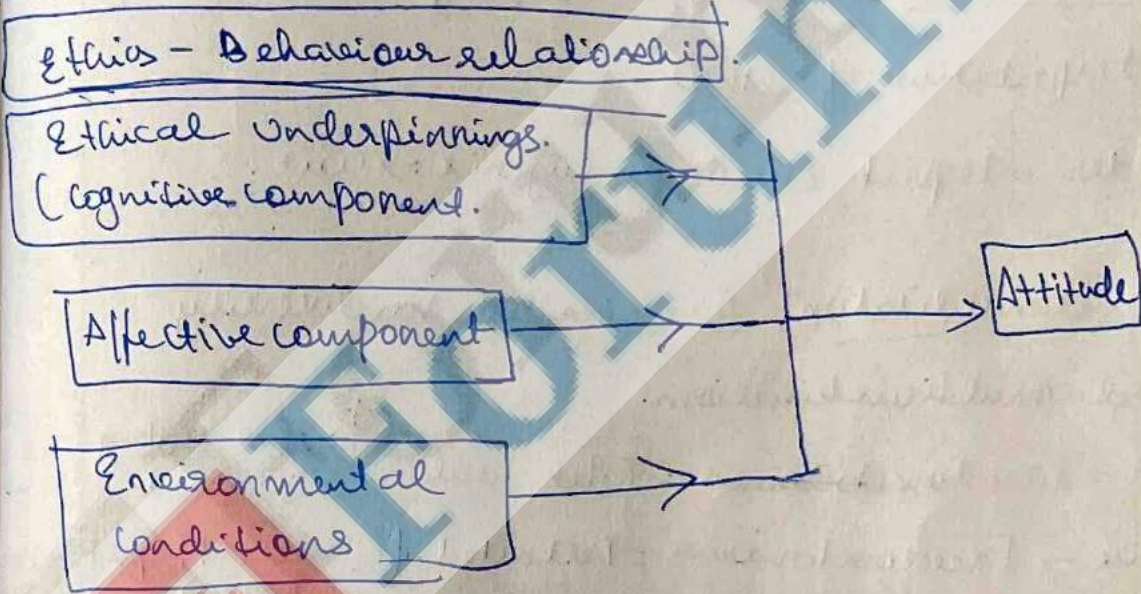 Ethics - Behaviour relationship.
Ethical Underpinnings.
(Cognitive component.
Affective component
Attitude
Environmental
Conditions
Forum